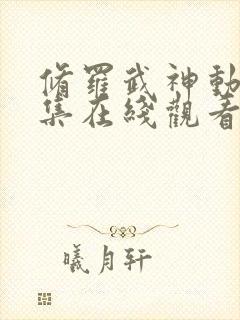 脩羅武神動
集在綫觀看
曦月轩